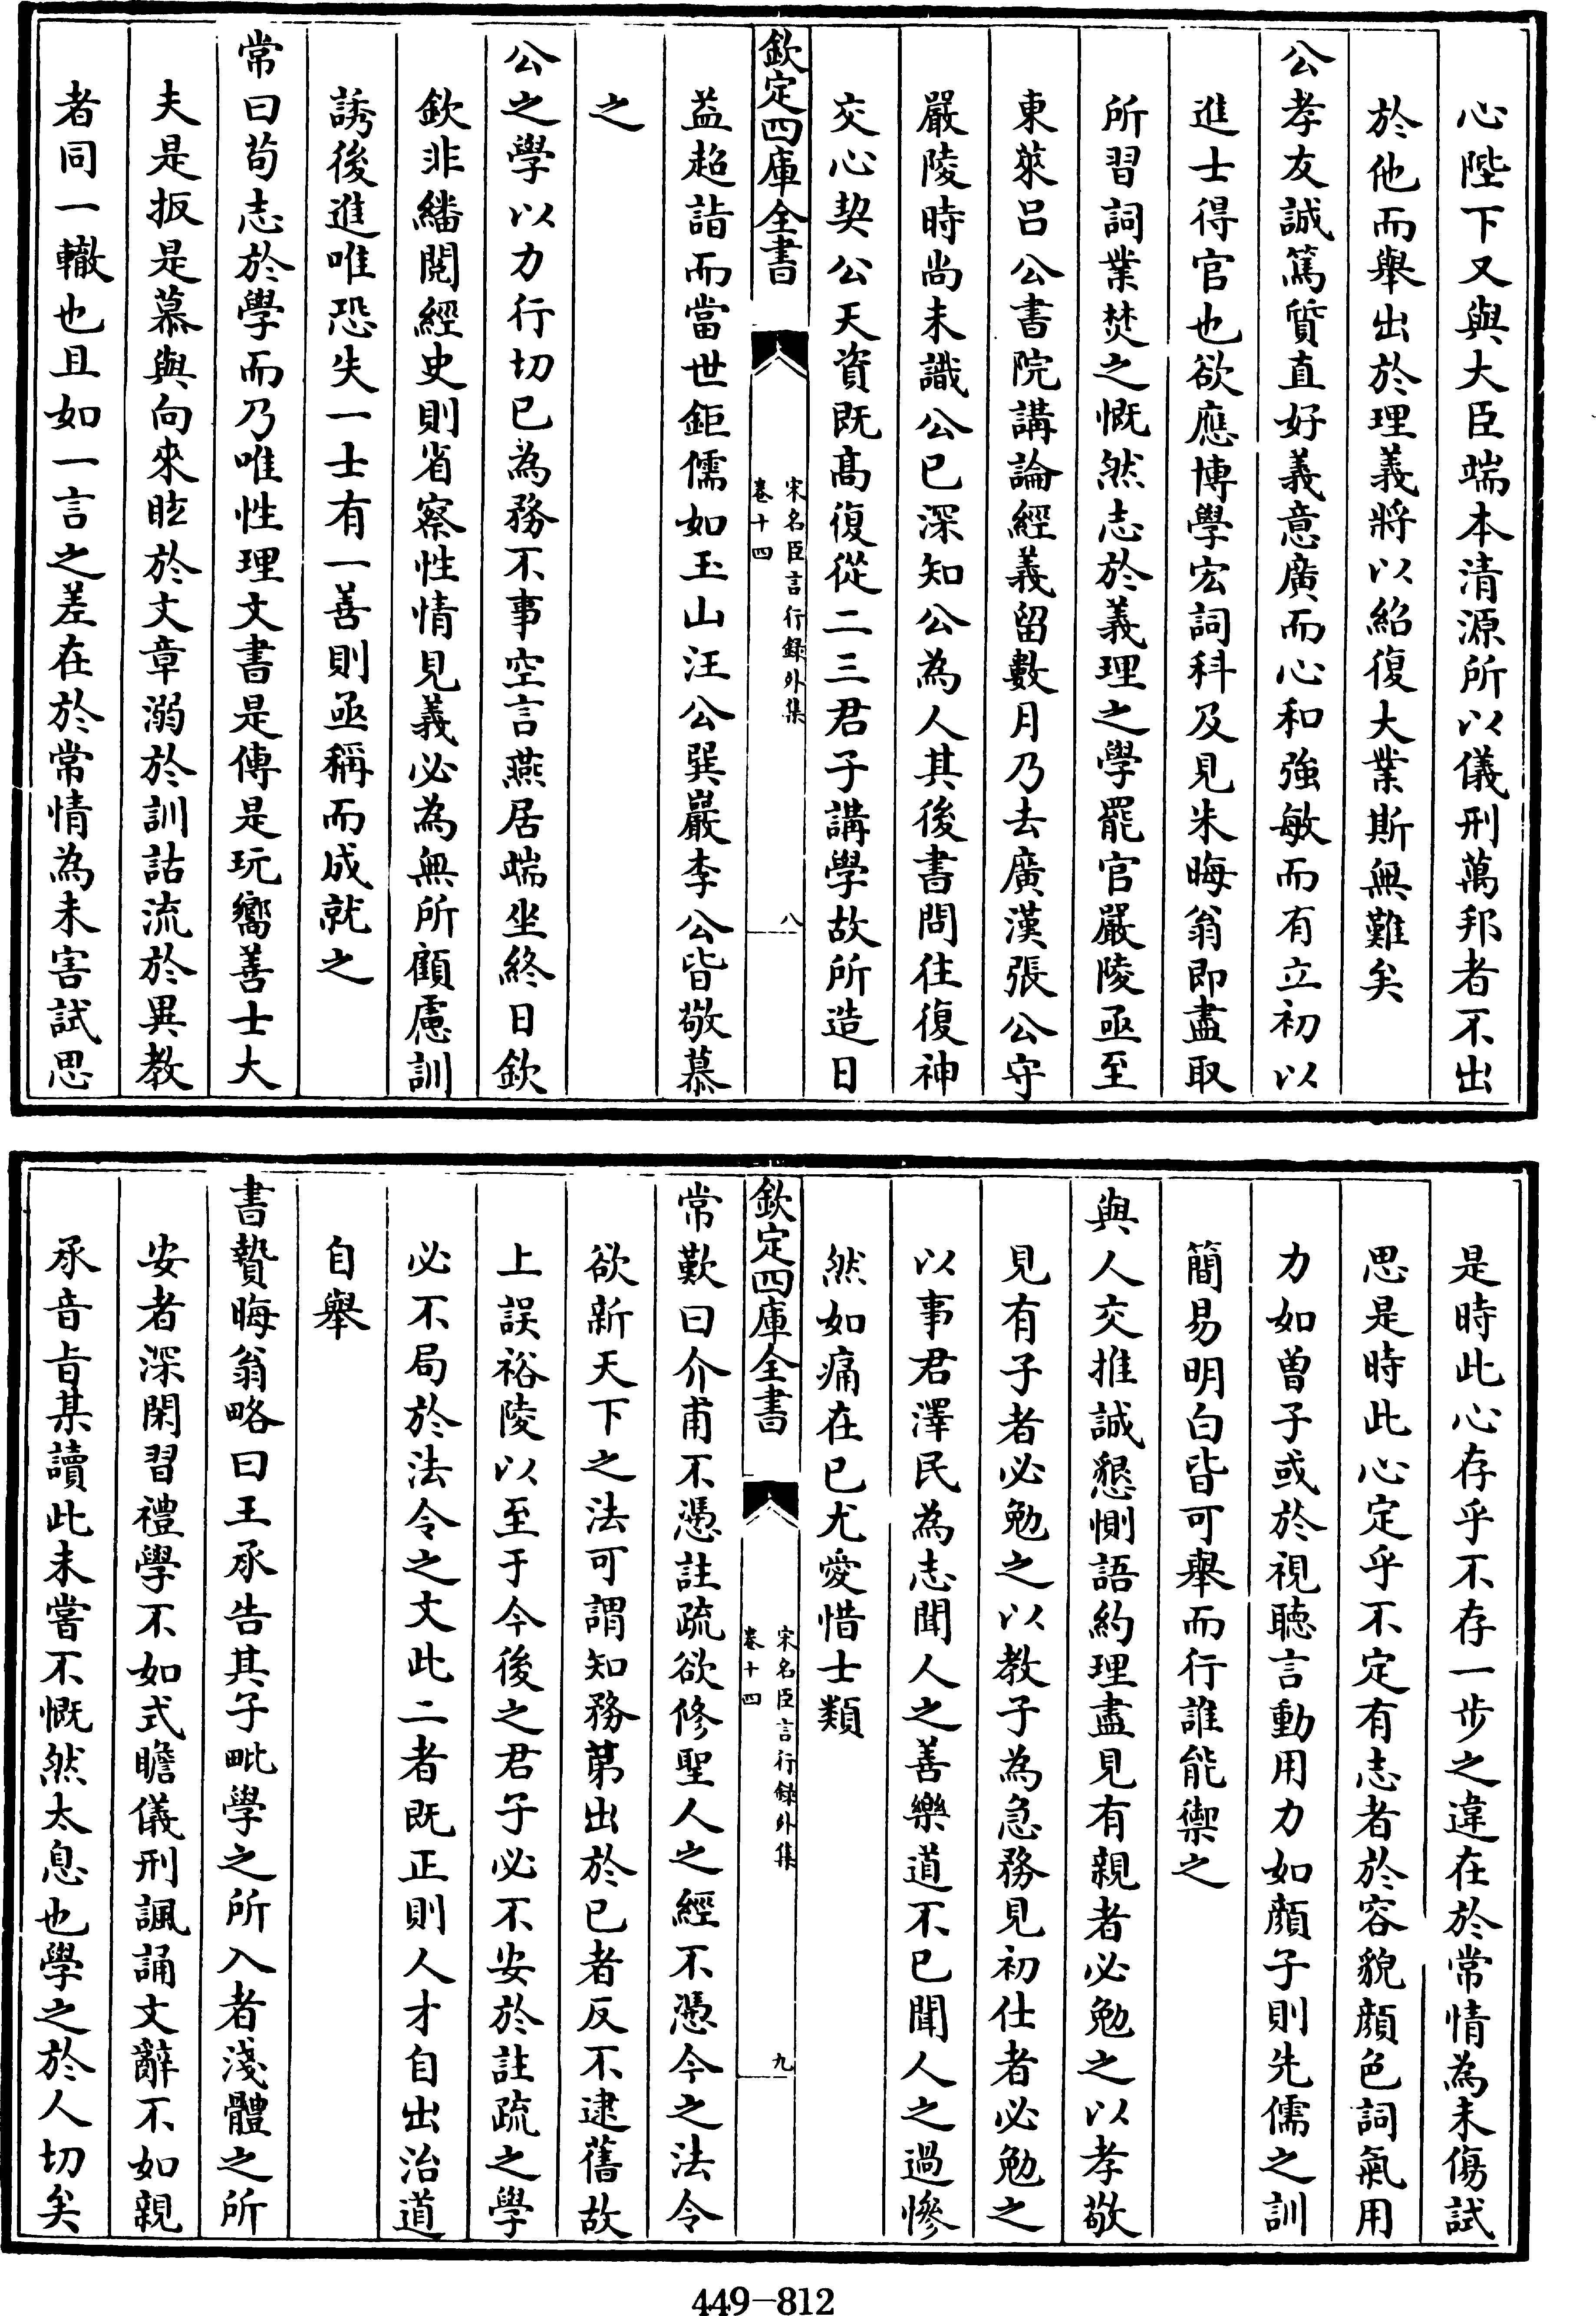 心陛下又與大臣端本清源所以儀刑萬邦者不出
於他而舉出於理義將以紹復大業斯無難矣
公孝友誠篤質直好義意廣而心和強敏而有立初以
進士得官也欲應博學宏詞科及見朱晦翁即盡取
所習詞業焚之慨然志於義理之學罷官嚴陵亟至
東萊呂公書院講論經義留數月乃去廣漢張公守
嚴陵時尚未識公已深知公為人其後書問往復神
交心契公天資既髙復從二三君子講學故所造日
欽定四庫全書
宋名臣言行録外集
卷十四
八
益超詣而當世鉅儒如玉山汪公巽巖李公皆敬慕
之
公之學以力行切已為務不事空言燕居端坐終日欽
欽非繙閱經史則省察性情見義必為無所顧慮訓
誘後進唯恐失一士有一善則亟稱而成就之
常曰茍志於學而乃唯性理文書是傳是玩嚮善士大
夫是扳是慕與向來眩於文章溺於訓詁流於異教
者同一轍也且如一言之差在於常情為未害試思
是時此心存乎不存一步之違在於常情為未傷試
思是時此心定乎不定有志者於容貌顔色詞氣用
力如曽子或於視聽言動用力如顔子則先儒之訓
簡易明白皆可舉而行誰能禦之
與人交推誠懇惻語約理盡見有親者必勉之以孝敬
見有子者必勉之以教子為急務見初仕者必勉之
以事君澤民為志聞人之善樂道不已聞人之過慘
然如痛在已尤愛惜士類
欽定四庫全書
宋名臣言行録外集
卷十四
九
常歎曰介甫不憑註疏欲修聖人之經不憑今之法令
欲新天下之法可謂知務苐出於已者反不逮舊故
上誤裕陵以至于今後之君子必不安於註疏之學
必不局於法令之文此二者既正則人才自出治道
自舉
書贄晦翁略曰王承告其子毗學之所入者淺體之所
安者深閑習禮學不如式瞻儀刑諷誦文辭不如親
承音㫖某讀此未嘗不慨然太息也學之於人切矣
449—812